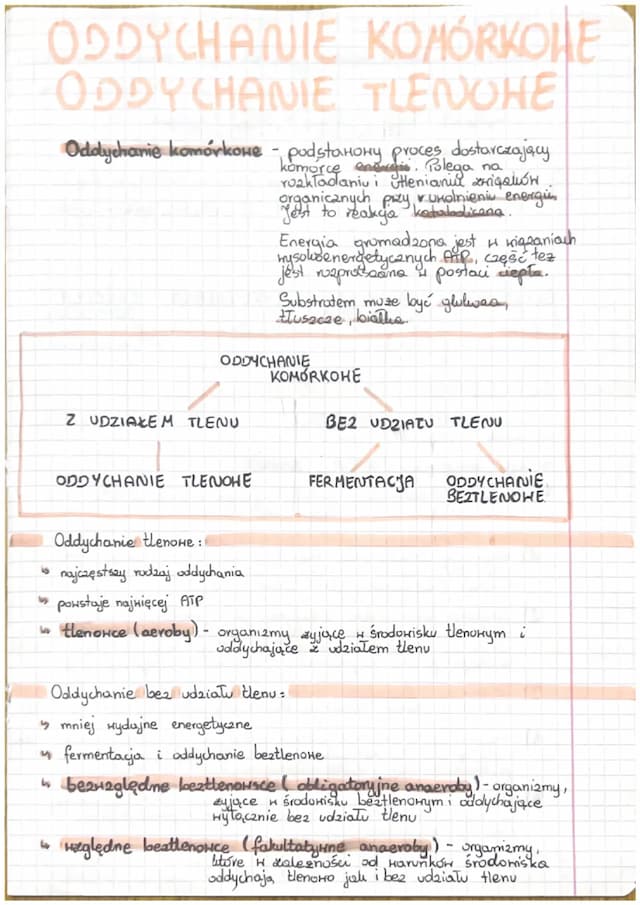 ODDYCHANIE KOMÓRKOWE
ODDYCHANIE TLENOWE
Oddychanie komórkowe - podstawowy proces dostarczający
komórce energii. Polega na
rozkładaniu i utlenianiu związków
organicznych przy uwolnieniu energii.
Jest to reakcja kataboliczna.
Energia gromadzona jest w wiązaniach
wysokoenergetycznych ATP, część też
jest rozproszona w postaci ciepła.
Substratem może być glukoza,
tłuszcze, białka.
ODDYCHANIE
KOMÓRKOWE
Z UDZIAŁEM TLENU
BEZ UDZIAŁU TLENU
ODDYCHANIE TLENOWE
FERMENTACJA
ODDYCHANIE
BEZTLENOWE
Oddychanie tlenowe:
↳ najczęstszy rodzaj oddychania
↳ powstaje najwięcej ATP
↳ tlenowce (aeroby) - organizmy żyjące w środowisku tlenowym i
oddychające z udziałem tlenu
Oddychanie bez udziału tlenu:
↳ mniej wydajne energetyczne
↳ fermentacja i oddychanie beztlenowe
↳ bezwzględne beztlenowce (obligatoryjne anaeroby) - organizmy,
żyjące w środowisku beztlenowym i oddychające
wyłącznie bez udziału tlenu
↳ względne beztlenowce (fakultatywne anaeroby) - organizmy,
które w zależności od warunków środowiska
oddychają tlenowo jak i bez udziału tlenu